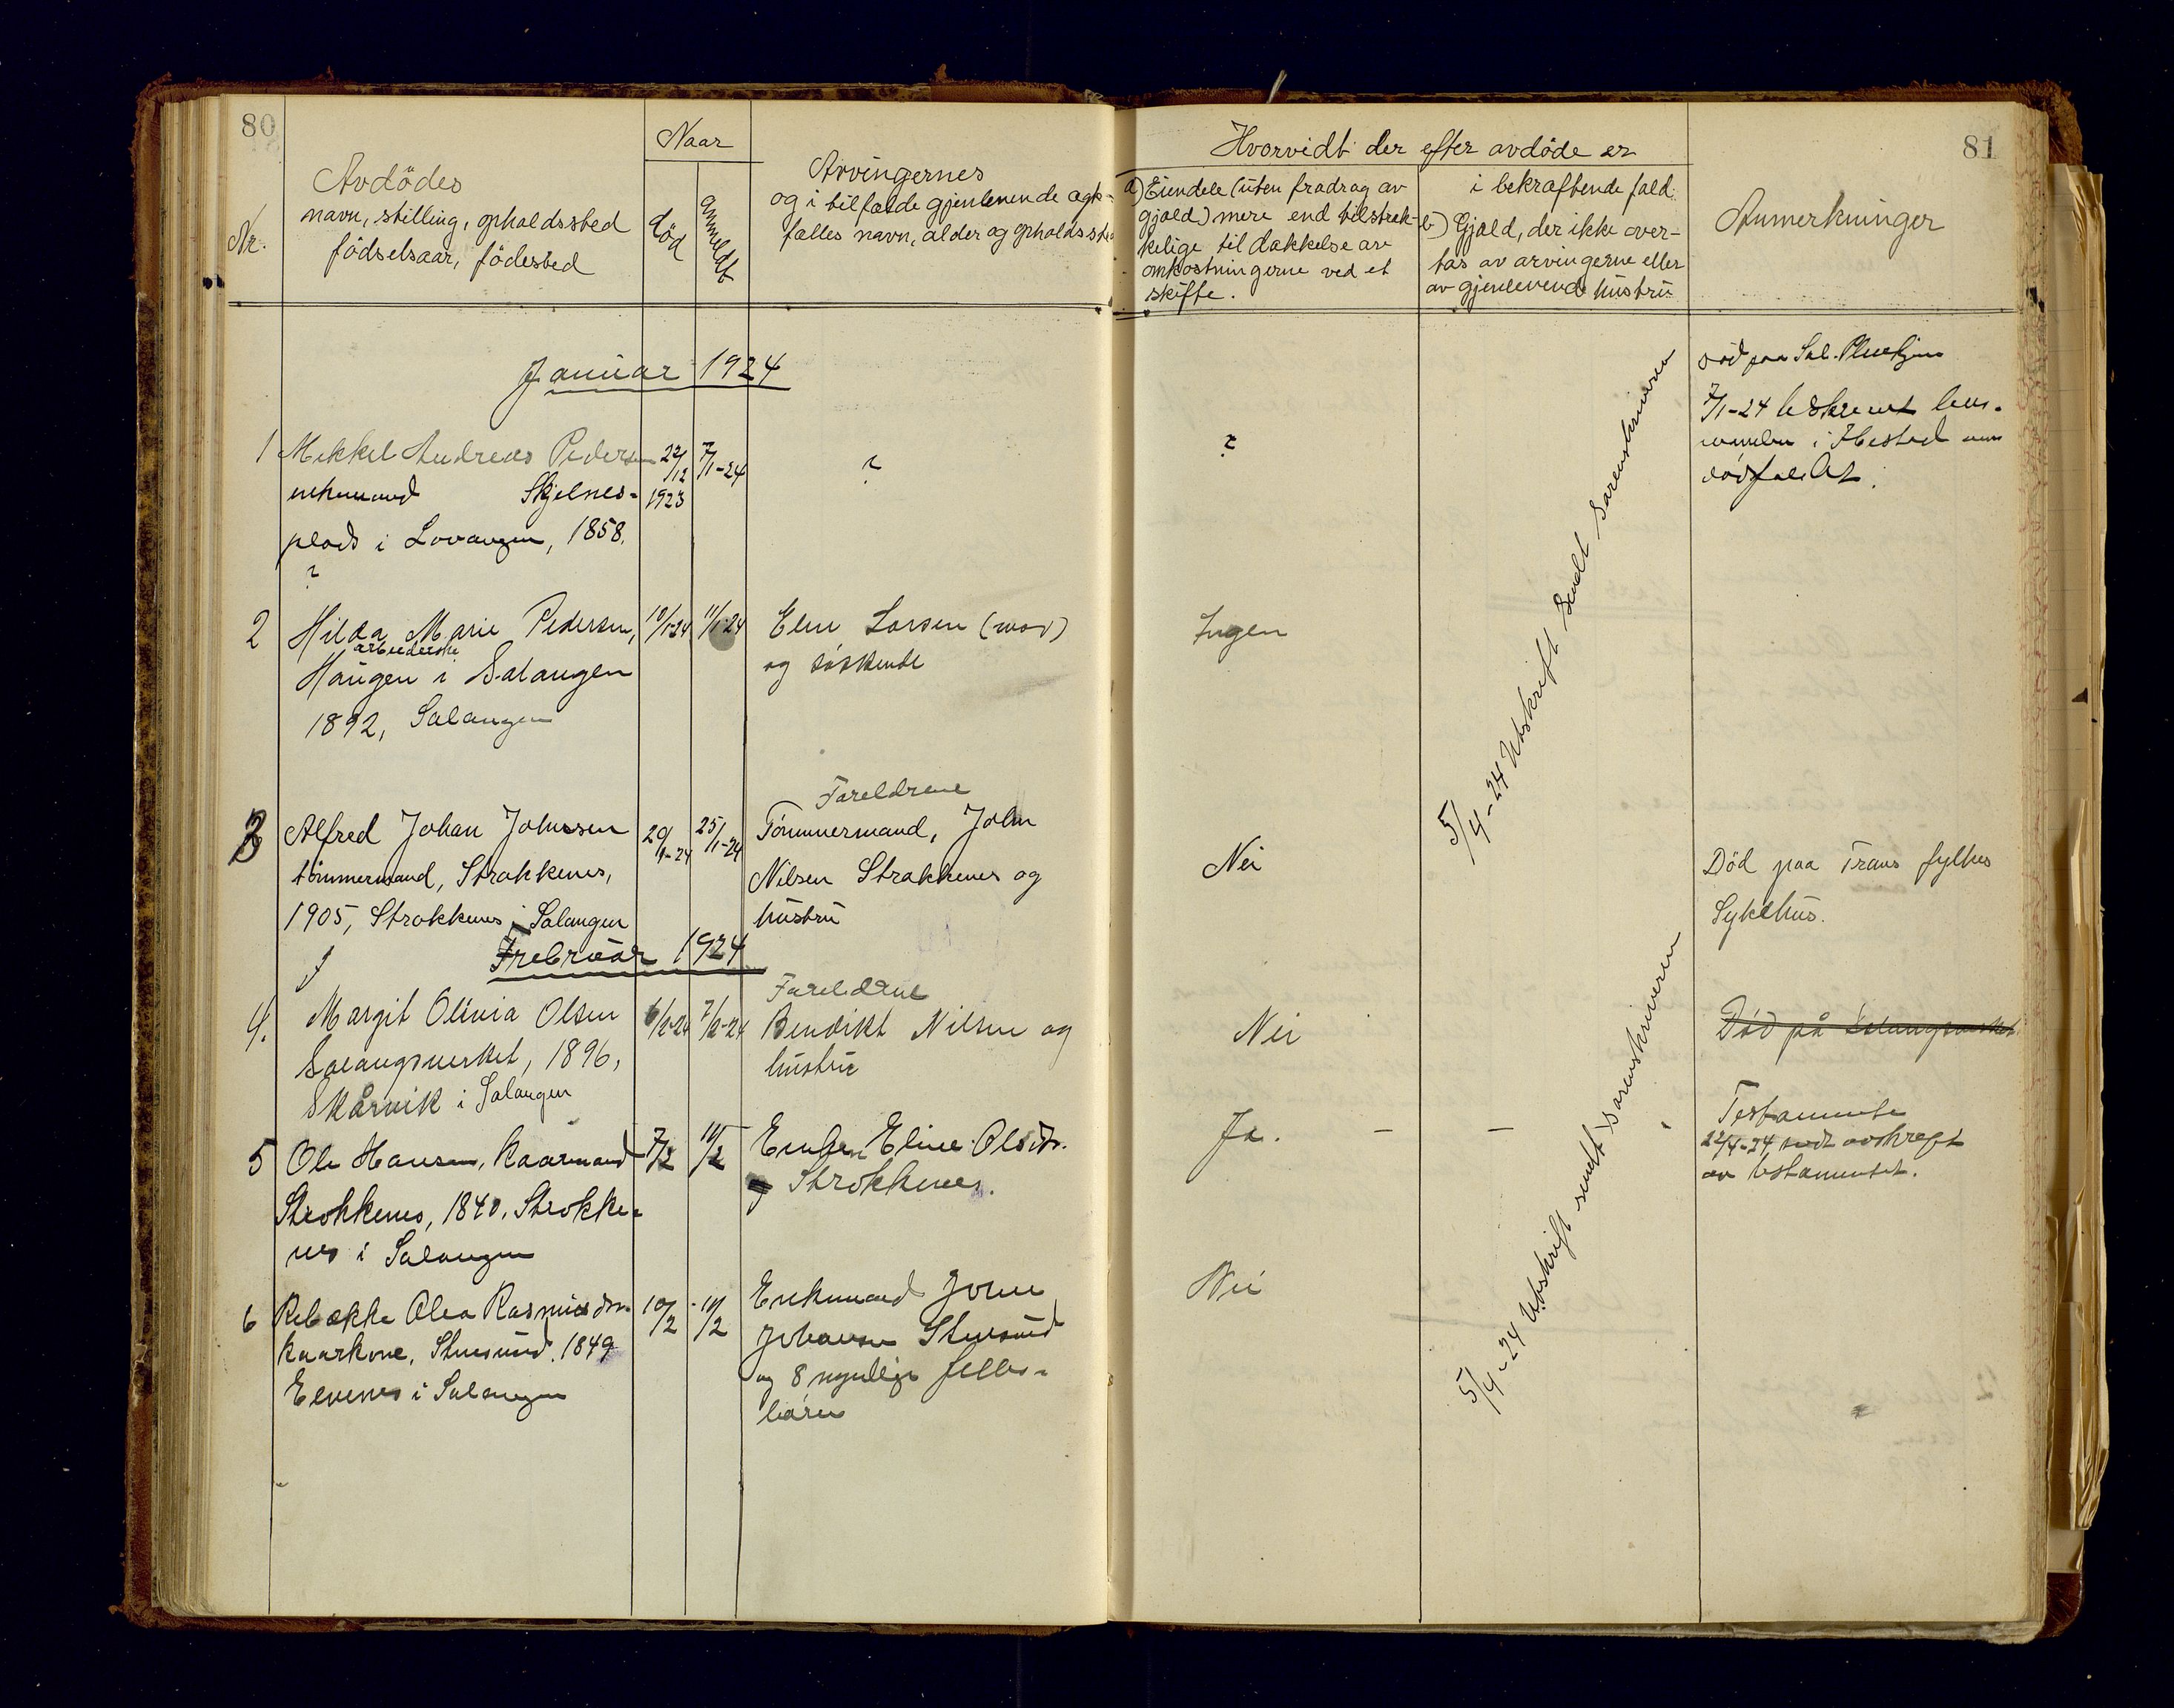 80
Nr.
Avdödes
navn, stilling, opholdssted
födselsaar, födested
Naar
död
anmeldt
Arvingernes
og i tilfælde gjenlevende ægte-
fælles navn, alder og opholdssted
Hvorvidt der efter avdöde er
a) Eiendele (uten fradrag av
gjæld) mere end tilstræk-
kelige til dækkelse av
omkostningerne ved et
skifte.
i bekræftende fald:
b) Gjæld, der ikke over-
tas av arvingerne eller
av gjenlevende hustru
Anmerkninger
81
Januar 1924
1 Mikkel Andreas Pedersen 22/12 1923 7/1-24 ? ?
enkemand Skjelnes-
plads i Lavangen, 1858.
?
død paa Sal. Pleiehjem
7/1-24 tilskrevet lens-
manden i Ibestad om
dødsfallet.
2 Hilda Marie Pedersen, 10/1-24 11/1-24 Elen Larsen (mor) Ingen
arbeiderske
Haugen i Salangen og søskende
1892, Salangen
5/4-24 Utskrift sendt sorenskriveren
Foreldrene
3 Alfred Johan Johnsen 20/1-24 25/1-24 Tömmermand, John Nei
tömmermand, Strokkenes, Nilsen Strokkenes og
1905, Strokkenes i Salangen hustru
Död paa Troms fylkes
Sykehus.
Februar 1924
Foreldrene
4. Margit Olivia Olsen 6/2-24 7/2-24 Bendikt Nilsen og Nei
Salangsverket, 1896, hustru
Skårvik i Salangen
Død på Salangsverket
5 Ole Hansen, Kaarmand 7/2 11/2 Enken Eline Olsdtr. Ja. – –
Strokkenes, 1840, Strokke- og Strokkenes.
nes i Salangen
Testamente
22/4-24, sendt avskrift
av testamentet.
6 Rebekke Olea Rasmusdtr. 10/2 11/2 Enkemand John Nei
kaarkone, 1849 Johansen
Elvenes i Salangen og 8 myndige felles-
børn
5/4-24 Utskrift sendt sorenskriveren